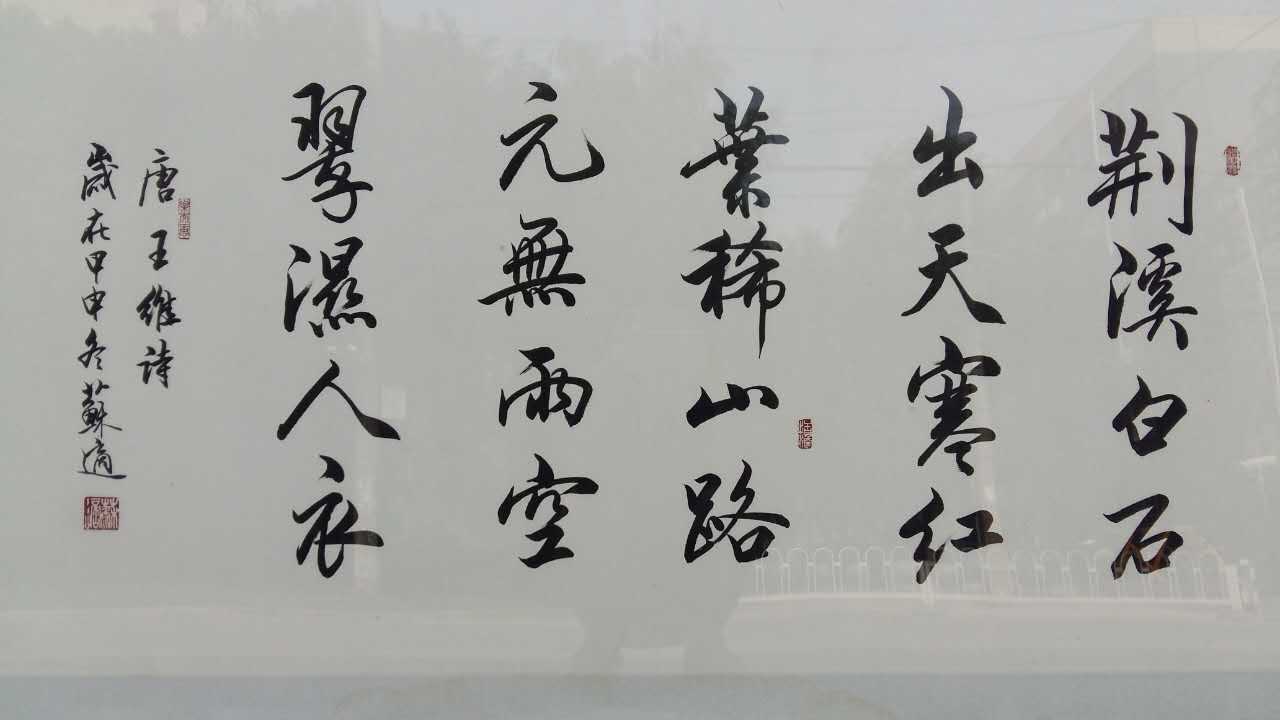 荆溪白石
出天寒红
葉稀山路
元無雨空
翠濕人衣
唐王維詩
歲在甲申冬蘇適